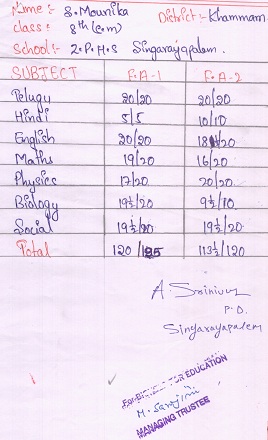 Name :- S. Mounika District :- Khammam
class :- 8th (E.M)
School :- Z.P.H.S Singarayapalem.
SUBJECT F.A-1 F.A-2
Telugu 20/20 20/20
Hindi 5/5 10/10
English 20/20 18½/20
Maths 19/20 16/20
Physics 17/20 20/20
Biology 19½/20 9½/10
Social 19½/20 19/20
Total 120/125 113½/120
A. Srinivas
P.O.
Singarayapalem
EDUCATION
M. Sarojini
MANAGING TRUSTEE